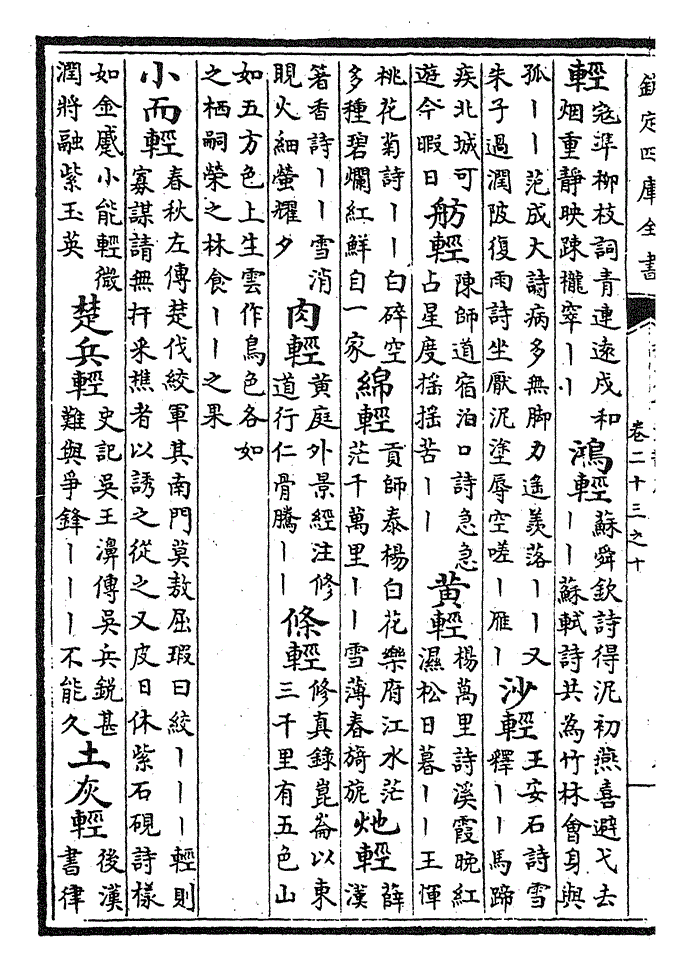 欽定四庫全書
卷二十三之十
輕
寇準柳枝詞青連遠戍和
烟重靜映疎櫳窣丨丨
鴻輕
蘇舜欽詩得泥初燕喜避弋去
丨丨蘇軾詩共為竹林會身與
孤丨丨范成大詩病多無脚力遥羨落丨丨又
朱子過澗陂復雨詩坐厭泥塗辱空嗟丨雁丨
沙輕
王安石詩雪
釋丨丨馬蹄
疾北城可
遊今暇日
舫輕
陳師道宿泊口詩急急
占星度揺揺苦丨丨
黄輕
楊萬里詩溪霞晚紅
濕松日暮丨丨王惲
桃花菊詩丨丨白碎空
多種碧爛紅鮮自一家
綿輕
貢師泰楊白花樂府江水茫
茫千萬里丨丨雪薄春旖旎
灺輕
薛
漢
箸香詩丨丨雪消
睍火細螢耀夕
肉輕
黄庭外景經注修
道行仁骨騰丨丨
條輕
修真錄崑崙以東
三千里有五色山
如五方色上生雲作鳥色各如
之栖嗣榮之林食丨丨之果
小而輕
春秋左傳楚伐絞軍其南門莫敖屈瑕曰絞丨丨丨輕則
寡謀請無扞采樵者以誘之從之又皮日休紫石硯詩樣
如金蹙小能輕微
潤將融紫玉英
楚兵輕
史記吳王濞傳吳兵銳甚
難與爭鋒丨丨丨不能久
土灰輕
後漢
書律